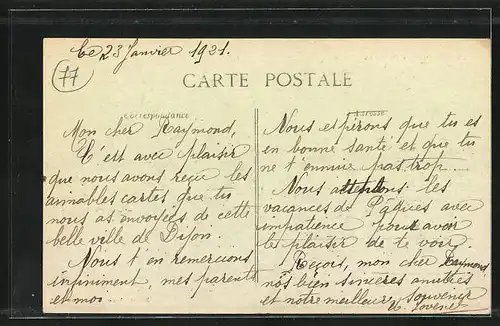 Le 23 Janvier 1931.
77
CARTE POSTALE
Correspondance
Mon cher Raymond,
C'est avec plaisir
que nous avons reçu les
aimables cartes que tu
nous as envoyées de cette
belle ville de Dijon.
Nous t'en remercions
infiniment, mes parents
et moi.
Adresse
Nous espérons que tu es
en bonne santé et que tu
ne t'ennuie pas trop.
Nous attendons les
vacances de Pâques avec
impatience pour avoir
le plaisir de te voir.
Reçois, mon cher Raymond
nos bien sincères amitiés
et notre meilleur souvenir